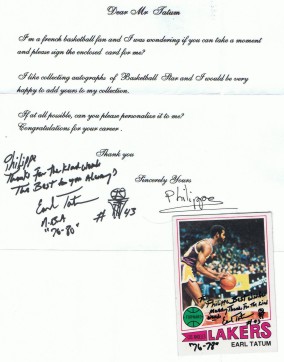 Dear Mr Tatum
I'm a french basketball fan and I was wondering if you can take a moment
and please sign the enclosed card for me?
I like collecting autographs of Basketball Star and I would be very
happy to add yours to my collection.
If at all possible, can you please personalize it to me?
Congratulations for your career.
Thank you
Sincerely Yours
Philippe
Philippe
Thanks For the Kind Words
The Best to you Always!
Earl Tatum
N.B.A
"76-80"
#43
Philippe Best Wishes
Thanks For the Kind
Words
Earl Tatum
"76-78"
LAKERS
EARL TATUM